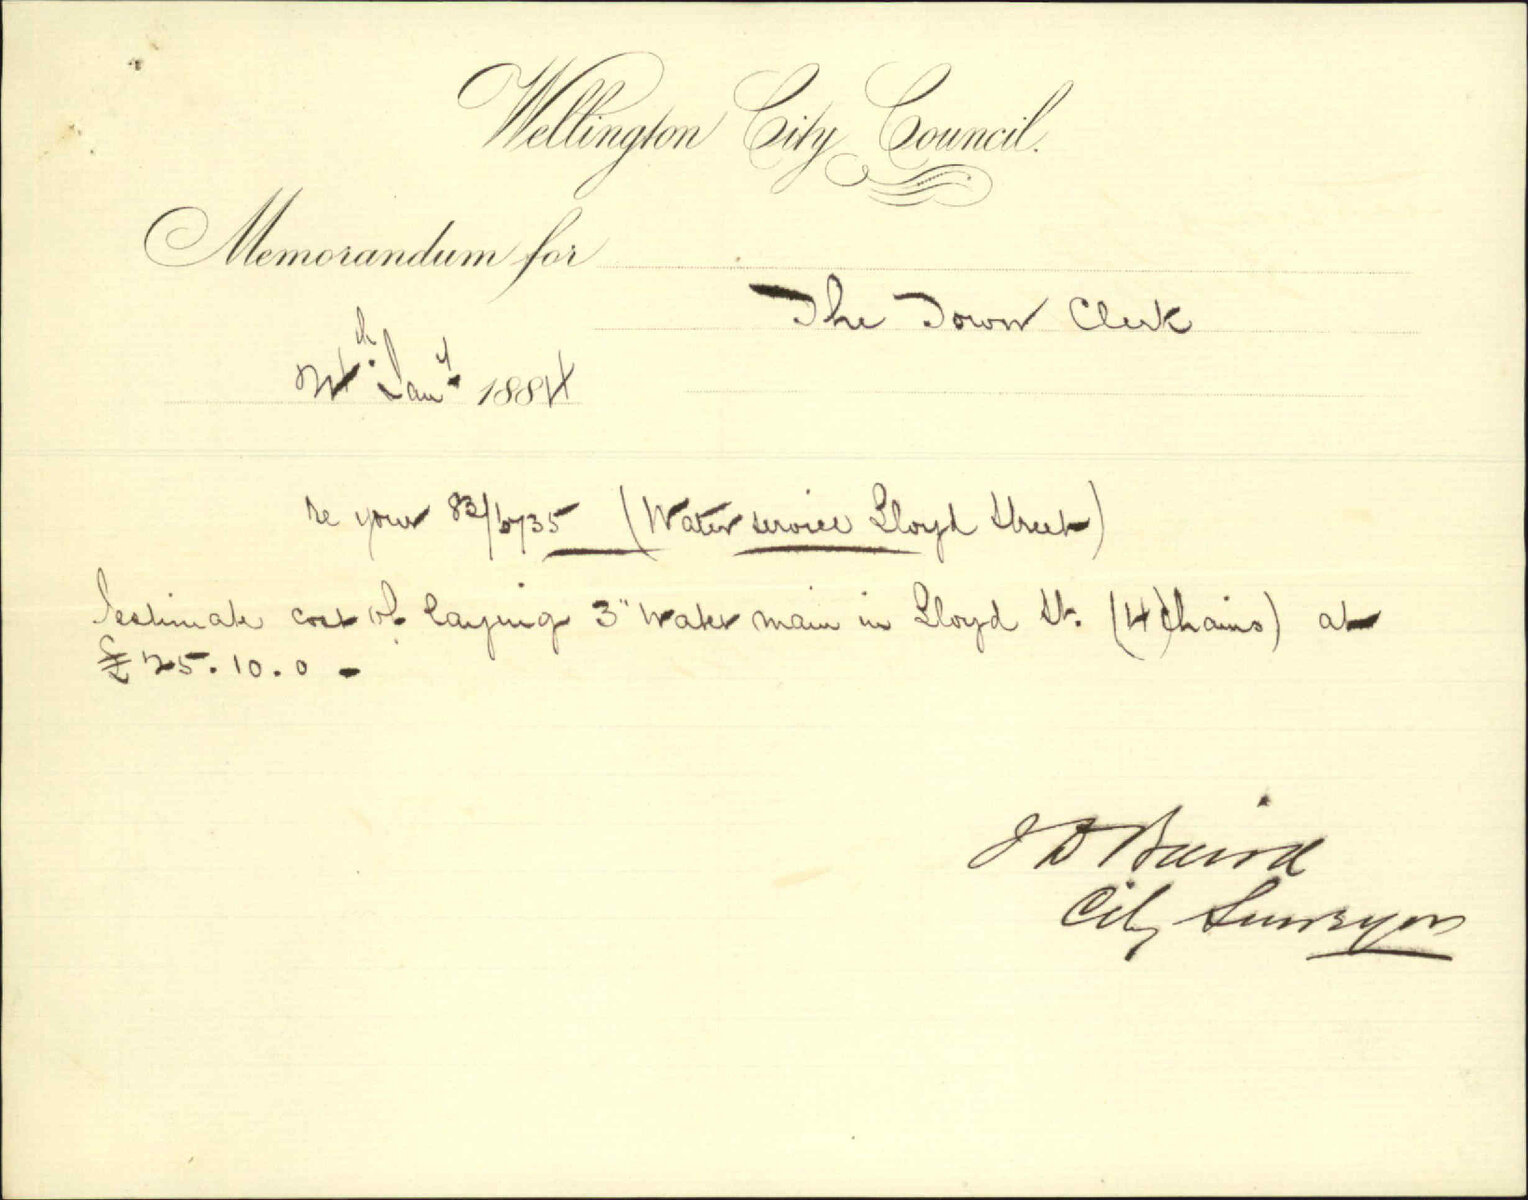 Wellington City Council.
Memorandum for
The Town Clerk
24th Jany 1884
re your 83/1735 (Water service Lloyd Street)
I estimate cost of laying 3" water main in Lloyd St. (4 chains) at
£25.10.0 -
J D Baird
City Surveyor